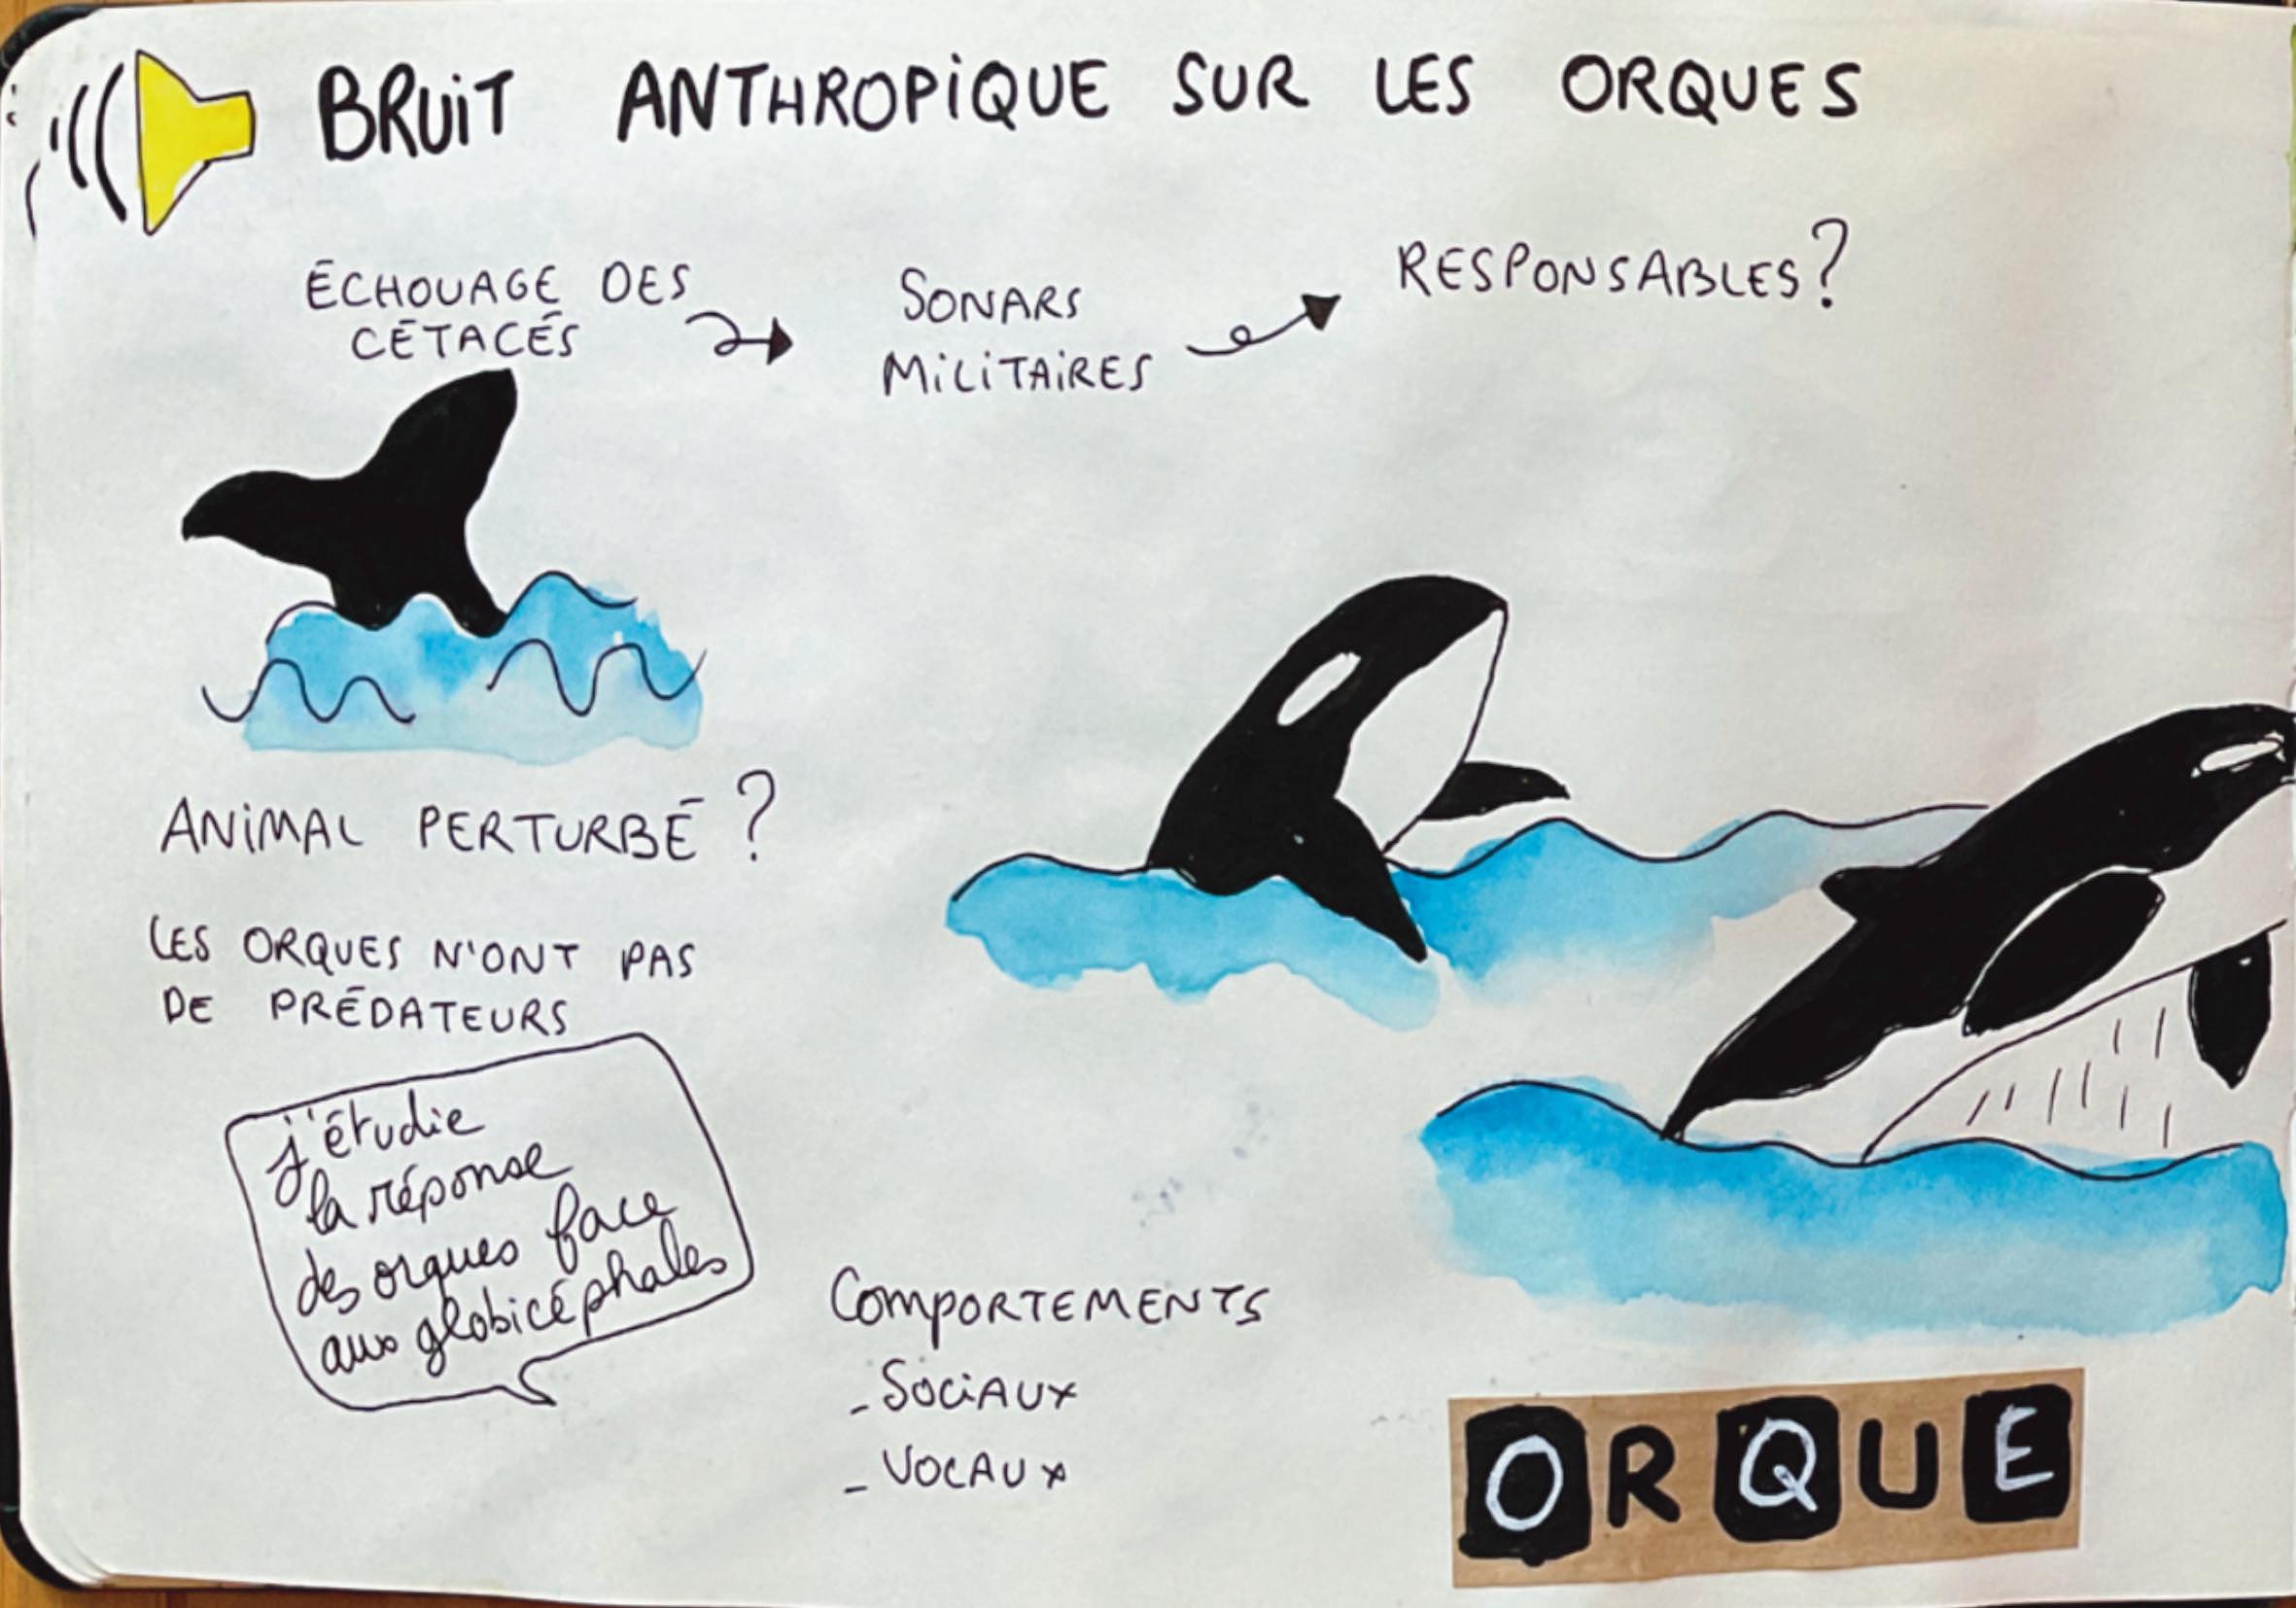 BRUIT ANTHROPIQUE SUR LES ORQUES
ÉCHOUAGE DES
CÉTACÉS
SONARS
MILITAIRES
RESPONSABLES?
ANIMAL PERTURBÉ ?
LES ORQUES N'ONT PAS
DE PRÉDATEURS
j'étudie
la réponse
des orques face
aux globicéphales
COMPORTEMENTS
- SOCIAUX
- VOCAUX
ORQUE